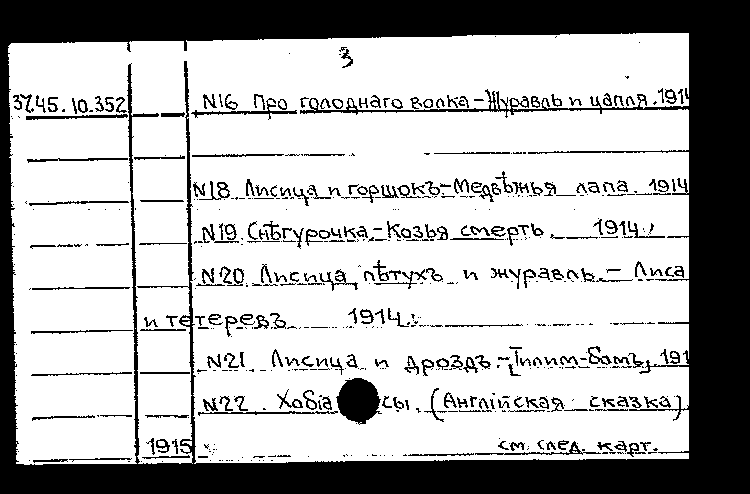 3
37.45.10.352 N16 Про голоднаго волка-Журавль и цапля. 1914
N18 Лисица и горшокъ-Медвѣжья лапа. 1914
N19 Снѣгурочка-Козья смерть. 1914.
N20 Лисица, пѣтухъ и журавль.- Лиса
и тетеревъ 1914.
N21 Лисица и дроздъ.-„Тилим-бомъ„ 191
N22. (Англійская сказка)
1915 см. след. карт.